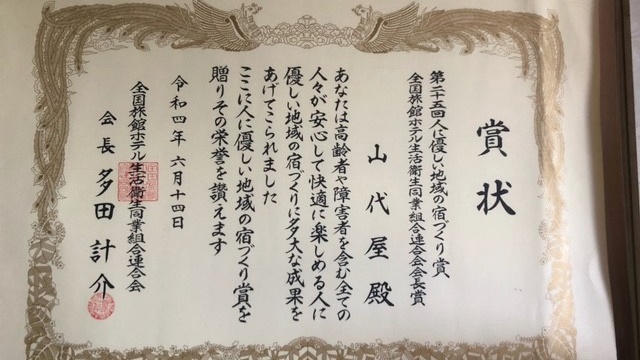 賞状
第二十五回人に優しい地域の宿づくり賞
全国旅館ホテル生活衛生同業組合連合会会長賞
山代屋殿
あなたは高齢者や障害者を含む全ての
人々が安心して快適に楽しめる人に
優しい地域の宿づくりに多大な成果を
あげてこられました
ここに人に優しい地域の宿づくり賞を
贈りその栄誉を讃えます
令和四年六月十四日
全国旅館ホテル生活衛生同業組合連合会
会長多田計介